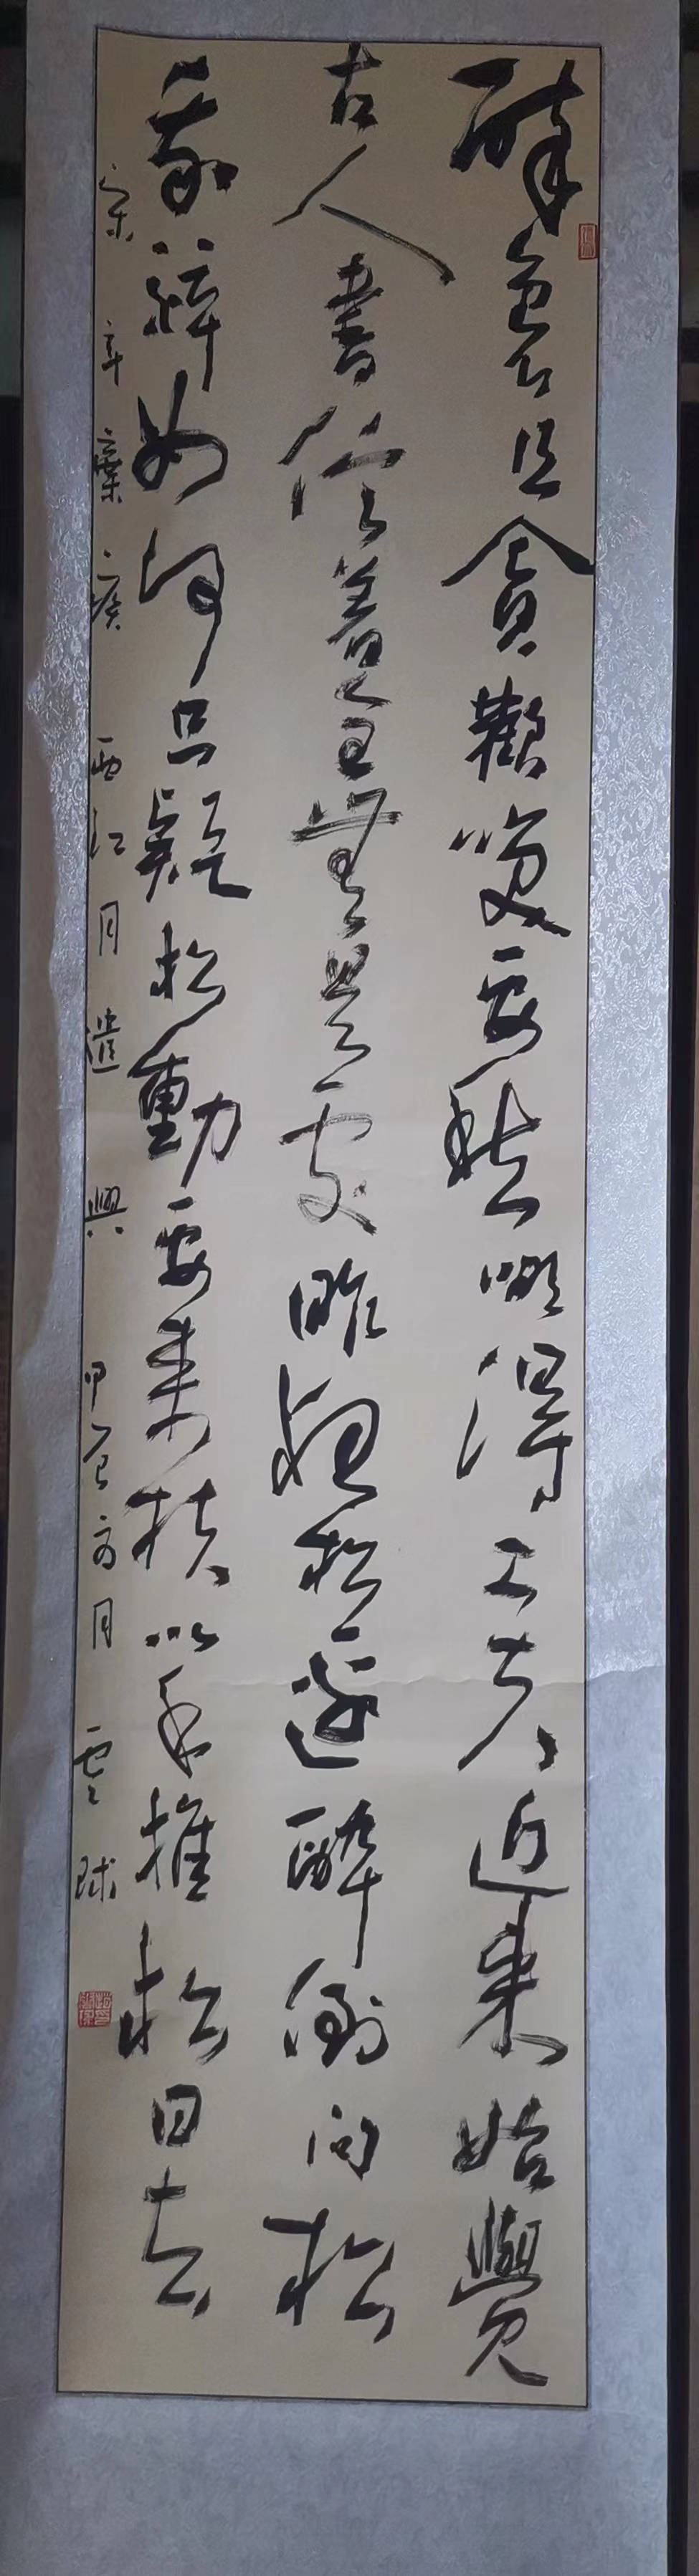 醉裏且貪歡笑要愁哪得工夫近來始覺
古人書信著全無是處昨夜松邊醉倒問松
我醉如何只疑松動要來扶以手推松曰去
宋辛棄疾西江月遣興甲辰月雲球